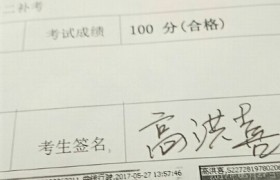 二补考
考试成绩 100 分(合格)
考生签名, 高洪喜
2017-05-27 13:57:46
高洪喜,522728197808